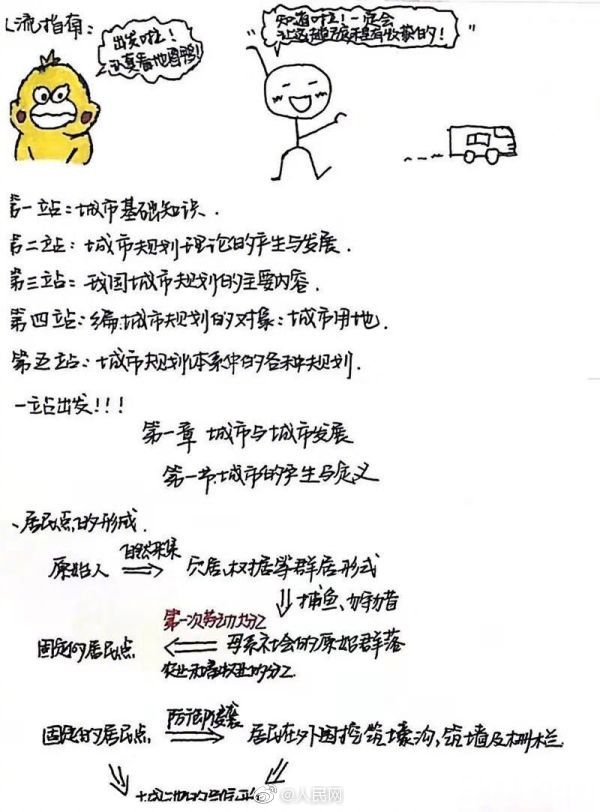 流指南：
出发啦！
认真看地图鸭！
知道啦！一定会
让这趟旅程有收获的！
第一站：城市基础知识．
第二站：城市规划理论的产生与发展．
第三站：我国城市规划的主要内容．
第四站：编城市规划的对象：城市用地．
第五站：城市规划体系中的各种规划．
一站出发！！！
第一章 城市与城市发展
第一节．城市的产生与定义
、居民点的形成．
原始人
自然采集
穴居、树居等群居形式
捕鱼、狩猎
第一次劳动大分工
固定的居民点
母系社会的原始群落
农业和畜牧业的分工
固定的居民点
防御侵袭
居民在外围挖筑壕沟，筑墙及栅栏
@人民网